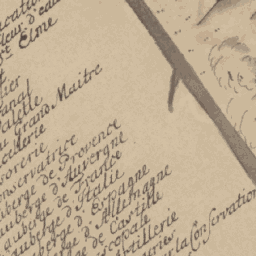 cation
eur d'eau
St Elme
t
lier
anal
alette
u Grand Maitre
ncelerie
esorerie
onservatrice
uberge de Provence
uberge d'Auvergne
Auberge de France
Auberge d'Italie
uberge d'Espagne
berge d'Allemagne
rge de Castille
copale
tillerie
erier
r la Conservation